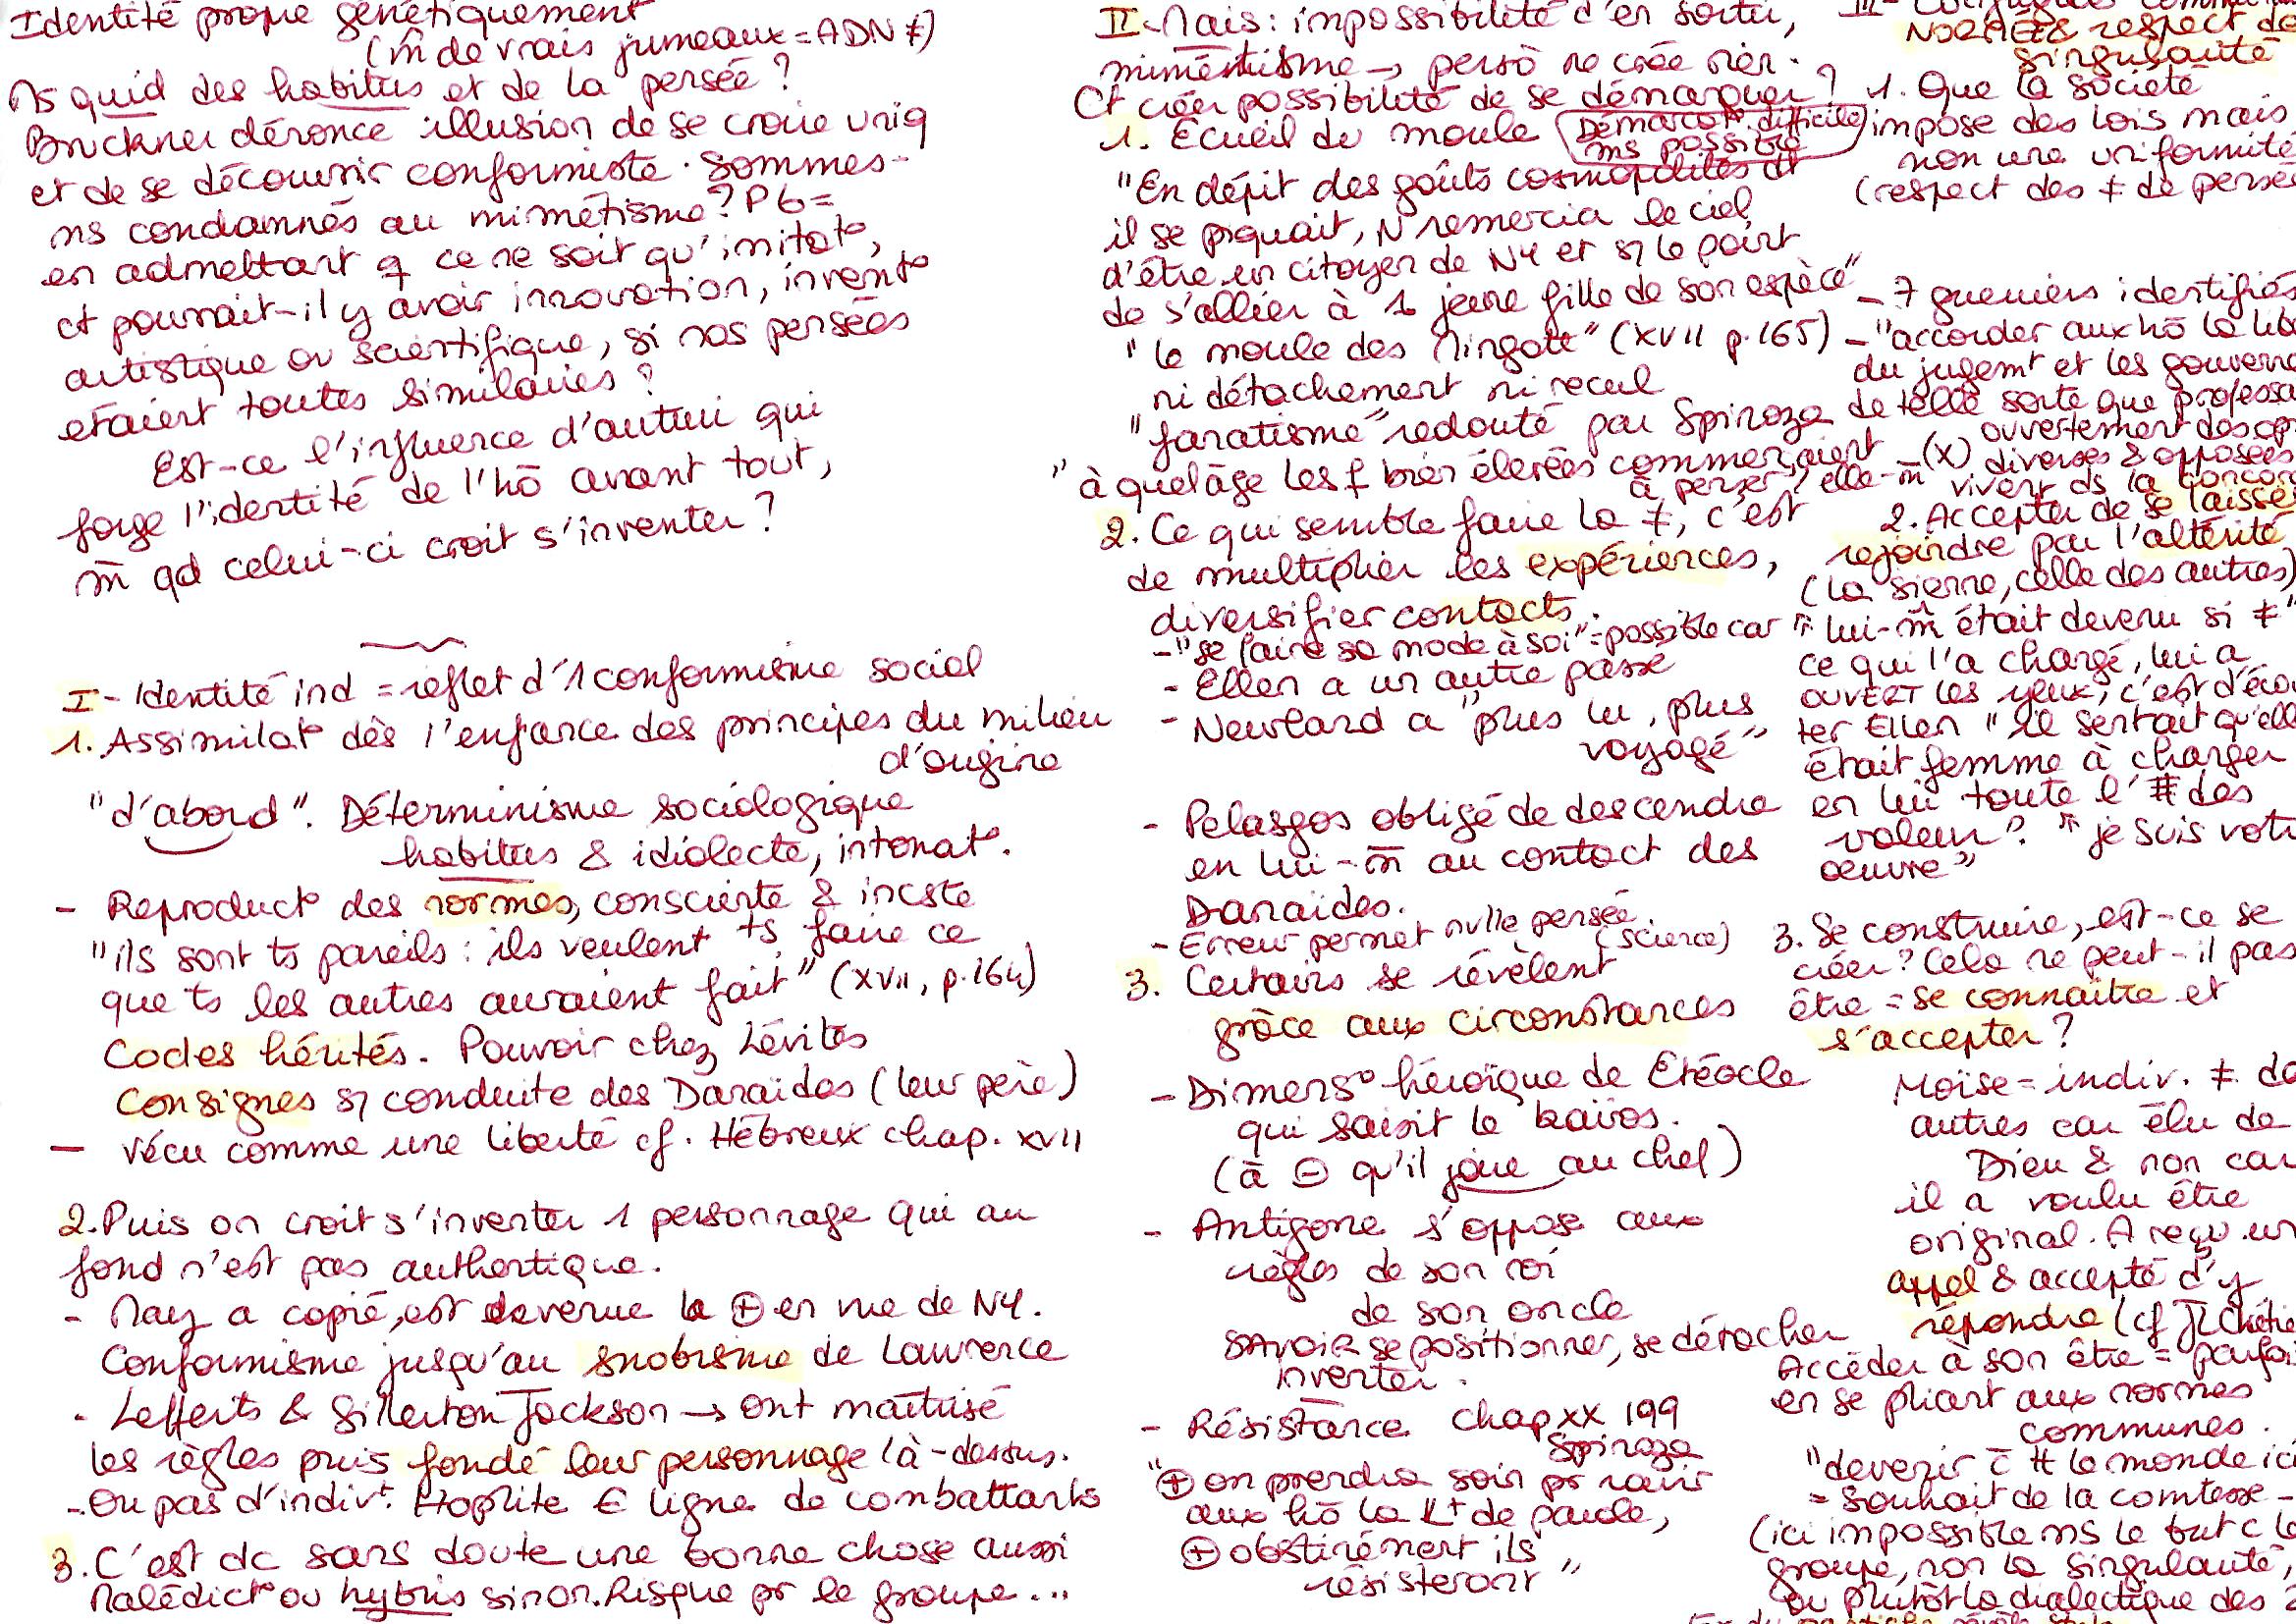 Identité propre génétiquement
(m̂ de vrais jumeaux = ADN ≠)
Ms quid des habitus et de la pensée ?
Bruckner dénonce illusion de se croire uniq
et de se découvrir conformiste. Sommes-
ns condamnés au mimétisme ? Pb =
en admettant q ce ne soit qu'imitat°,
ct pourrait-il y avoir innovation, invent°
artistique ou scientifique, si nos pensées
étaient toutes similaires ?
Est-ce l'influence d'autrui qui
forge l'identité de l'hō avant tout,
m̄ qd celui-ci croit s'inventer ?
I - Identité ind = reflet d'1 conformisme social
1. Assimilat° dès l'enfance des principes du milieu
d'origine
"d'abord". Déterminisme sociologique
habitus & idiolecte, intonat°.
- Reproduct° des normes, consciente & incste
"ils sont ts pareils : ils veulent ts faire ce
que ts les autres auraient fait" (XVII, p.164)
Codes hérités. Pouvoir chez Lévites
Consignes sr conduite des Danaïdes (leur père)
- vécu comme une liberté cf. Hébreux chap. XVII
2. Puis on croit s'inventer 1 personnage qui au
fond n'est pas authentique.
- May a copié, est devenue la ⊕ en vue de NY.
Conformisme jusqu'au snobisme de Lawrence
- Lefferts & Sillerton Jackson → ont maîtrisé
les règles puis fondé leur personnage là-dessus.
- Ou pas d'indivt. Hoplite ∈ ligne de combattants
3. C'est dc sans doute une bonne chose aussi
Malédict° ou hybris sinon. Risque pr le groupe...
II - Mais : impossibilité d'en sortir,
mimétisme → perso ne crée rien.
Ct créer possibilité de se démarquer ?
1. Écueil du moule
Démarcat° difficile
ms possible
"En dépit des goûts cosmopolites dt
il se piquait, N remercia le ciel
d'être un citoyen de NY et sr le point
de s'allier à 1 jeune fille de son espèce"
"le moule des Mingott" (XVII p.165)
ni détachement ni recul
"fanatisme" redouté par Spinoza
"à quel âge les f bien élevées commençaient
à penser ? elle-m̄
2. Ce qui semble faire la ≠, c'est
de multiplier les expériences,
diversifier contacts.
- "se faire sa mode à soi" = possible car
- Ellen a un autre passé
- Newland a "plus lu, plus
voyagé"
- Pelasgos obligé de descendre
en lui-m̄ au contact des
Danaïdes.
- Erreur permet nvlle pensée
(science)
3. Certains se révèlent
grâce aux circonstances
- Dimens° héroïque de Etéocle
qui saisit le kaïros.
(à ⊖ qu'il joue au chef)
- Antigone s'oppose aux
règles de son roi
de son oncle
SAVOIR se positionner, se détacher
inventer.
- Résistance chap XX 199
Spinoza
"⊕ on prendra soin pr ravir
aux hō la Lt de parole,
⊕ obstinément ils
résisteront"
NORMES & respect de
singularité
1. Que la société
impose des lois mais
non une uniformité
(respect des ≠ de pensée
- 7 guerriers identifiés
- "accorder aux hō la
du jugemt et les
de telle sorte que
ouvertement des
(X) diverses & opposées
vivent ds la
2. Accepter de se
rejoindre par l'altérité
(la sienne, celle des autres)
"lui-m̂ était devenu si ≠"
ce qui l'a changé, lui a
OUVERT les yeux, c'est
ter Ellen "Il sentait
était femme à changer
en lui toute l'# des
valeurs". "je suis
œuvre"
3. Se construire, est-ce se
créer ? Cela ne peut-il pas
être = se connaître et
s'accepter ?
Moïse = indiv. ≠
autres car élu de
Dieu & non
il a voulu être
original. A reçu
appel & accepté d'y
répondre (cf JL
Accéder à son être =
en se pliant aux normes
communes.
"devenir c̄ tt le monde ici
= souhait de la comtesse -
(ici impossible ms le but
groupe, non la singularité,
ou plutôt la dialectique des